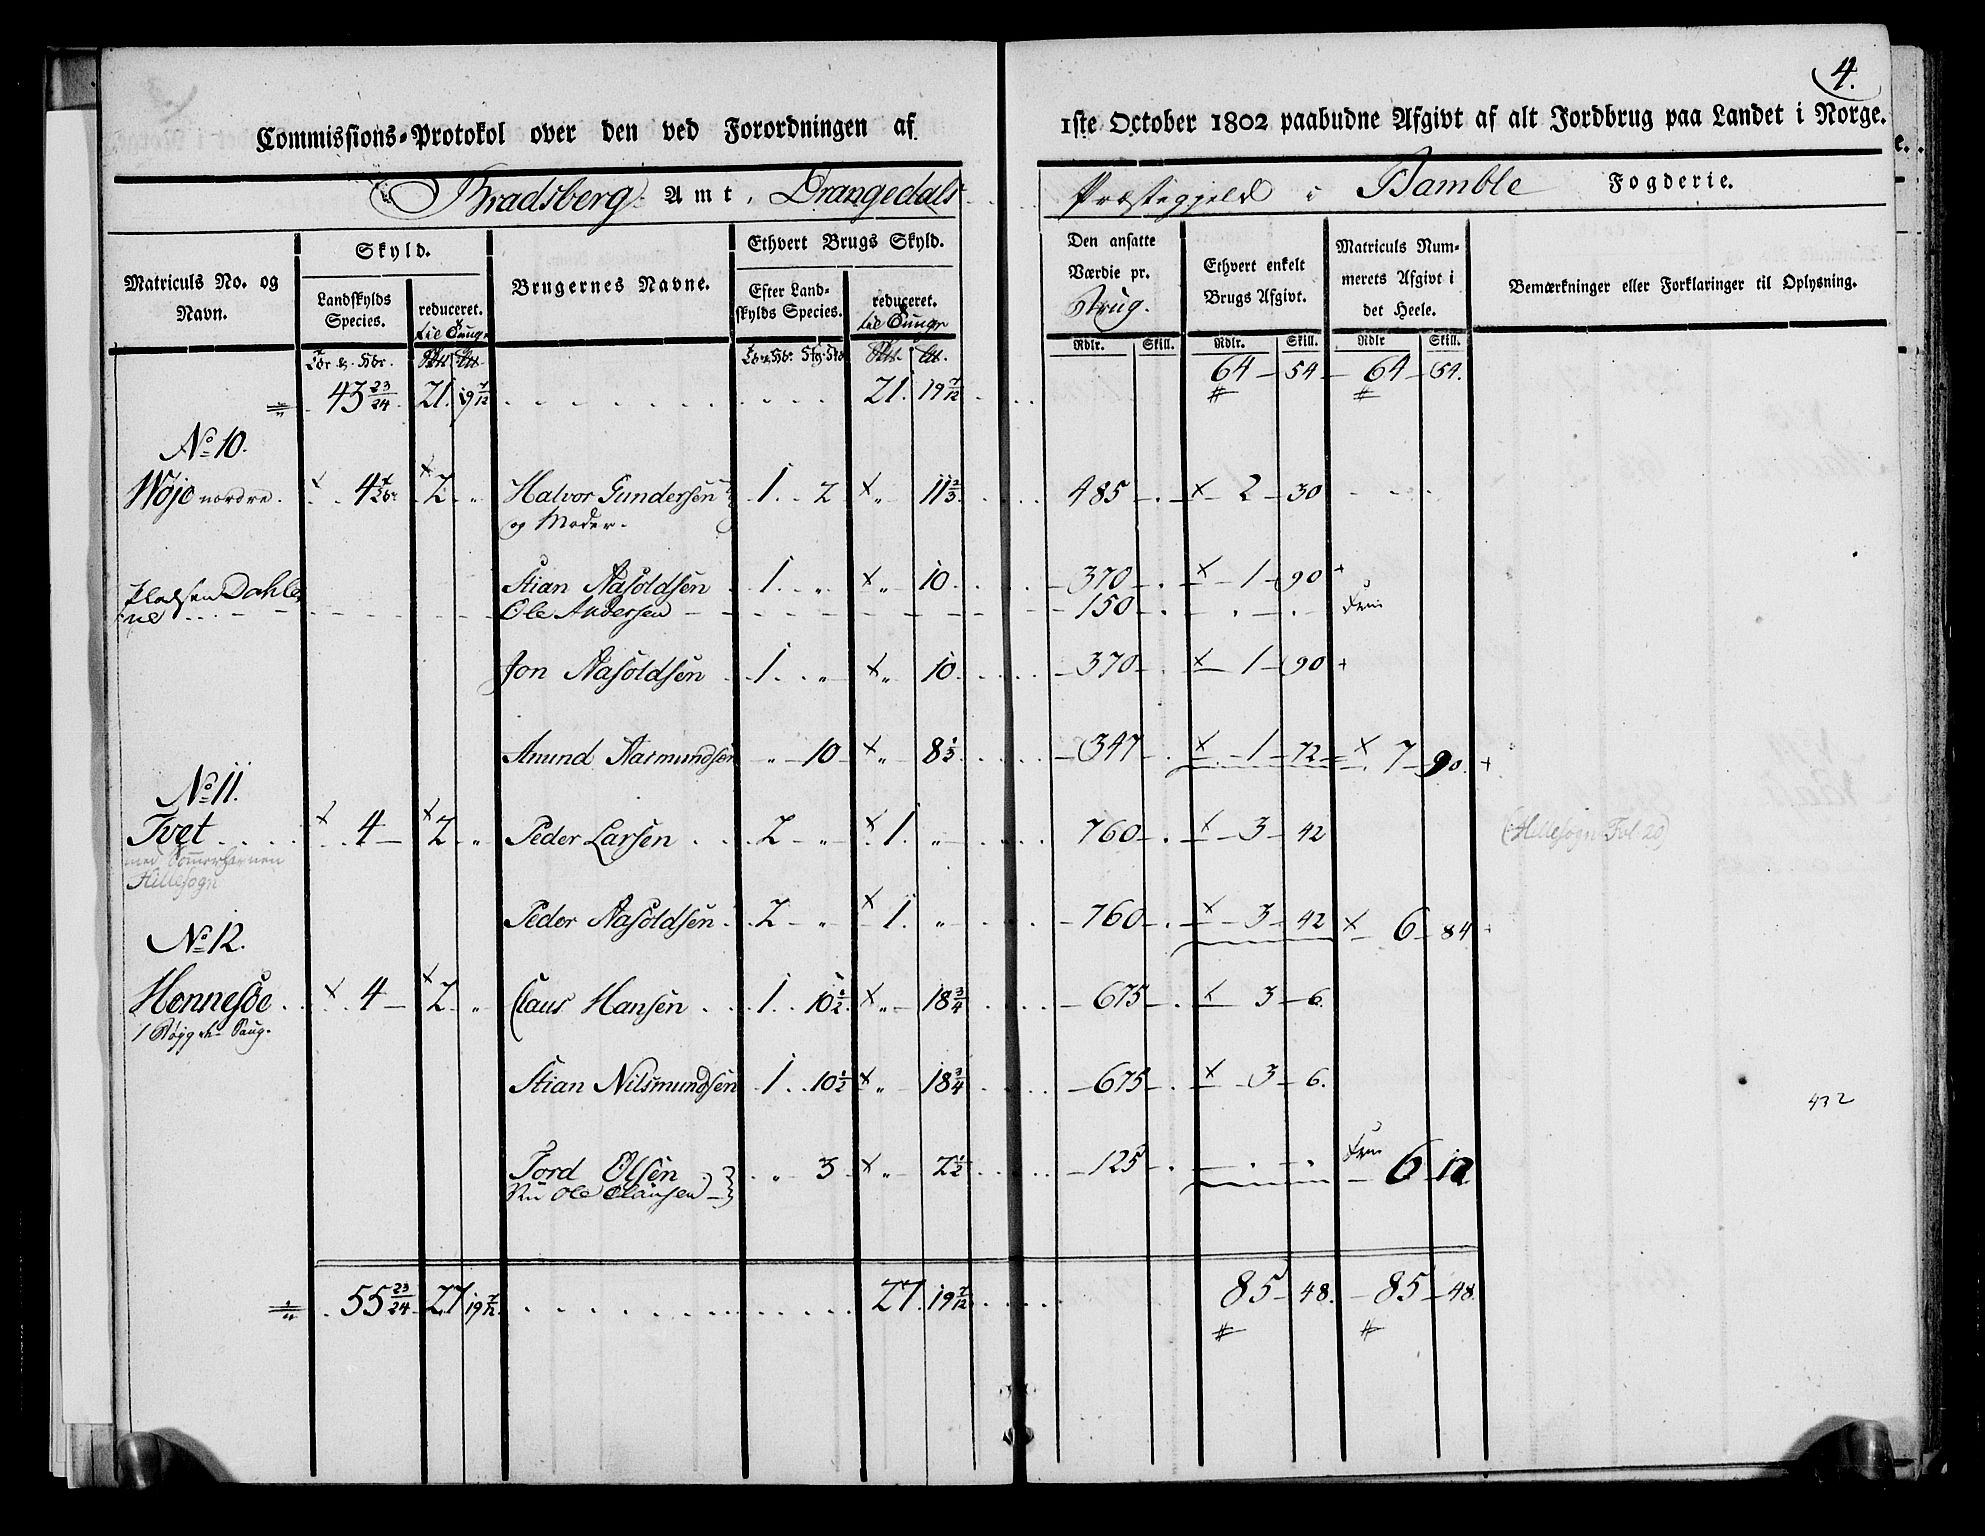 4.
Commissions-Protokol over den ved Forordningen af 1ste October 1802 paabudne Afgivt af alt Jordbrug paa Landet i Norge.
Bradsberg Amt, Drangedals Præstegjeld i Bamble Fogderie.
Matriculs No. og Navn.
Skyld.
Landskylds Species.
reduceret. til Tunge
Brugernes Navne.
Ethvert Brugs Skyld.
Efter Landskylds Species.
reduceret. til Tunge
Den ansatte Værdie pr. Brug.
Ethvert enkelt Brugs Afgivt.
Matriculs Nummerets Afgivt i det Heele.
Bemærkninger eller Forklaringer til Oplysning.
Rdlr. Skill. Rdlr. Skill. Rdlr Skill.
43 23/24 21. 19 7/12 21. 19 7/12 64 54 64 54.
No 10.
Wøje nordre. 4 2 " Halvor Gundersen 1 2 " 11 2/3 485 2 30
og Moder.
Stian Aasoldsen 1 " " 10 370 1 90
Pladsen Dahlene Ole Andersen 150 Frie
Jon Aasoldsen 1 " " 10 370 1 90
Anund Aasmundsen " 10 " 8 1/3 347 1 72 7 90
No 11.
Tvet 4 2 " Peder Larsen 2 " 1 " 760 3 42 (Hillesogn Fol 20)
med
Hillesogn
Peder Aasoldsen 2 " 1 " 760 3 42 6 84
No 12.
Hennesøe 4 2 " Claus Hansen 1 10 1/2 " 18 3/4 675 3 6.
Stian Nilsmundsen 1 10 1/2 " 18 3/4 675 3 6.
432
Tord Olsen " 3 " 2 1/2 125 Frie 6 12
Nu Ole Clausen
55 23/24 27 19 7/12 27. 19 7/12 85 48. 85 48.